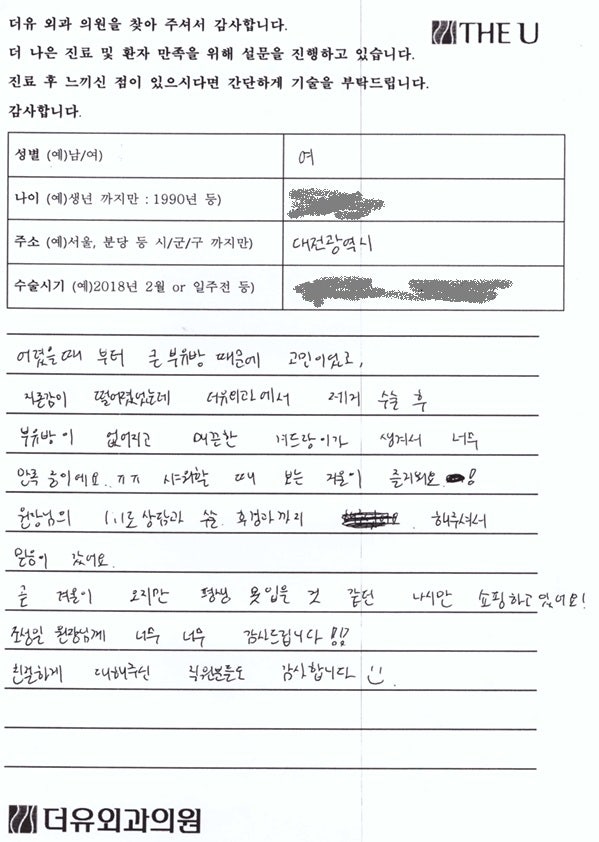 더유 외과 의원을 찾아 주셔서 감사합니다.
THE U
더 나은 진료 및 환자 만족을 위해 설문을 진행하고 있습니다.
진료 후 느끼신 점이 있으시다면 간단하게 기술을 부탁드립니다.
감사합니다.
성별 (예)남/여) 여
나이 (예)생년 까지만 : 1990년 등)
주소 (예)서울, 분당 등 시/군/구 까지만) 대전광역시
수술시기 (예)2018년 2월 or 일주전 등)
어렸을때 부터 큰 부유방 때문에 고민이었고,
자존감이 떨어졌었는데 더유외과에서 제거 수술 후
부유방이 없어지고 매끈한 겨드랑이가 생겨서 너무
만족 중이에요. ㅠㅠ 샤워할 때 보는 거울이 즐거워요 !
원장님의 1:1로 상담과 수술. 후 경과까지 해주셔서
믿음이 갔어요.
곧 겨울이 오지만 평생 못입을 것 같던 나시만 쇼핑하고 있어요!
조성일 원장님께 너무 너무 감사드립니다 !!?
친절하게 대해주신 직원분들도 감사합니다 :)
더유외과의원